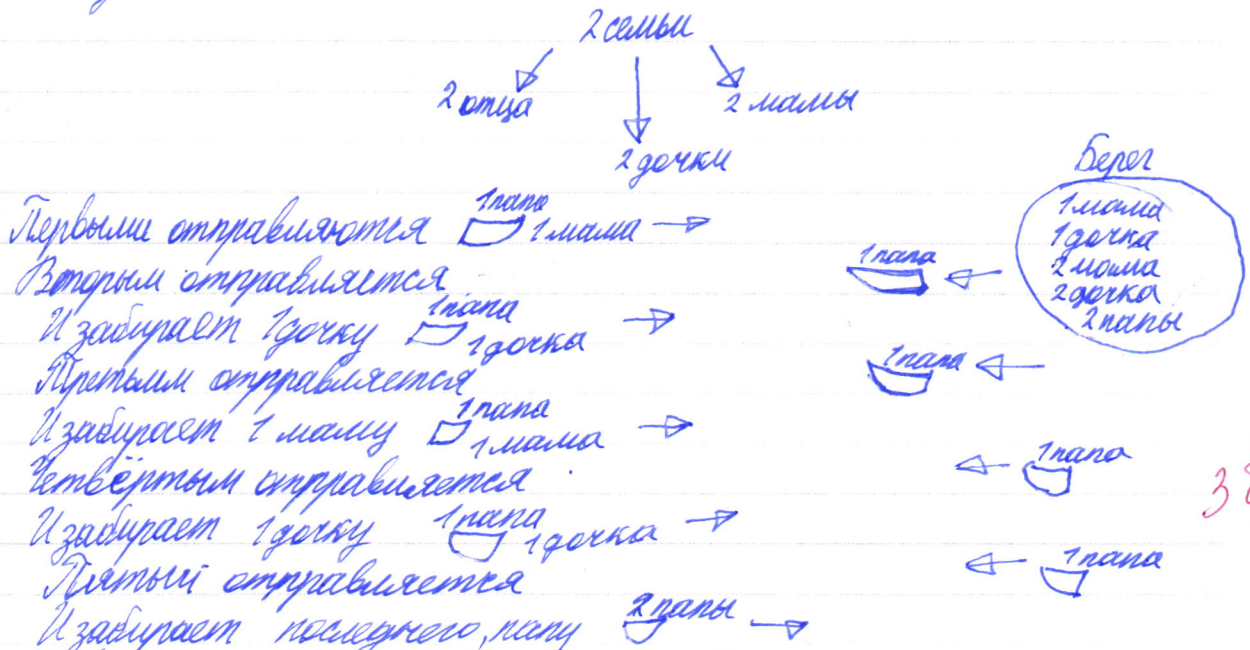 2 семьи
2 отца
2 мамы
2 дочки
Берег
1 мама
1 дочка
2 мама
2 дочка
2 папы
1 папа
Первыми отправляются 1 мама
Вторым отправляется 1 папа
1 папа
И забирает 1 дочку 1 дочка
Третьим отправляется 1 папа
1 папа
И забирает 1 маму 1 мама
Четвёртым отправляется 1 папа
1 папа
И забирает 1 дочку 1 дочка
Пятый отправляется 1 папа
И забирает последнего, папу 2 папы